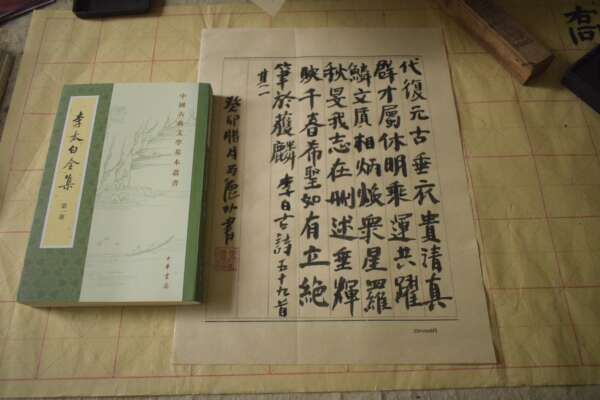 中國古典文學基本叢書
李太白全集
第一冊
中華書局
代復元古垂衣貴清真
群才屬休明乘運共躍
鱗文質相炳煥衆星羅
秋旻我志在刪述垂輝
映千春希聖如有立絕
筆於獲麟 李白古詩五十九首
其
癸卯腊月 書